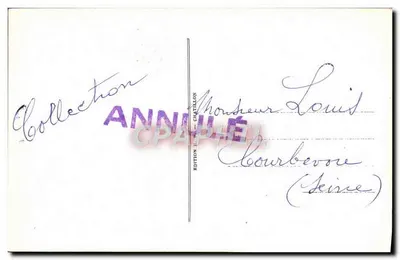 Collection
ANNULÉ
Monsieur Louis
Courbevoie
(Seine)
EDITION
CHATILLON